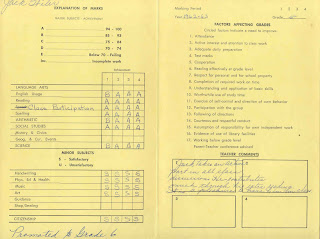 Jack Stiles
EXPLANATION OF MARKS
MAJOR SUBJECT ACHIEVEMENT
A 94 - 100
B 85 - 93
C 75 - 84
D 70 - 74
E Below 70 - Failing
Inc. Incomplete work
1 2 3 4
LANGUAGE ARTS
English Usage B A A A
Reading A A A A
Class Participation A A A A
Spelling
ARITHMETIC B A A A
SOCIAL STUDIES A A A A
History & Civics
Geog. & Cur. Events
SCIENCE B A A A
MINOR SUBJECTS
S - Satisfactory
U - Unsatisfactory
Handwriting S S S S
Phys. Ed. & Health S S S S
Music S S S S
Art S S S S
Guidance
Shop/Sewing
CITIZENSHIP S S S S
Promoted to Grade 6
Marking Period 1 2 3 4
Year Grade 5
FACTORS AFFECTING GRADES
Circled factors indicate a need to improve.
1. Attendance
2. Active interest and attention to class work
3. Adequate daily preparation
4. Test marks
5. Cooperation
6. Reading effectively at grade level
7. Respect for personal and school property
8. Completion of assigned work on time
9. Understanding and application of basic skills
10. Worthwhile use of study time
11. Exercise of self-control and direction of own behavior
12. Participation with the group
13. Following of directions
14. Courteous and respectful conduct
15. Assumption of responsibility for own independent work
16. Evidence of use of library facilities
17. Working below grade level
Parent-Teacher conference advised
TEACHER COMMENTS
1 Jack takes an active
part in all class
3 4